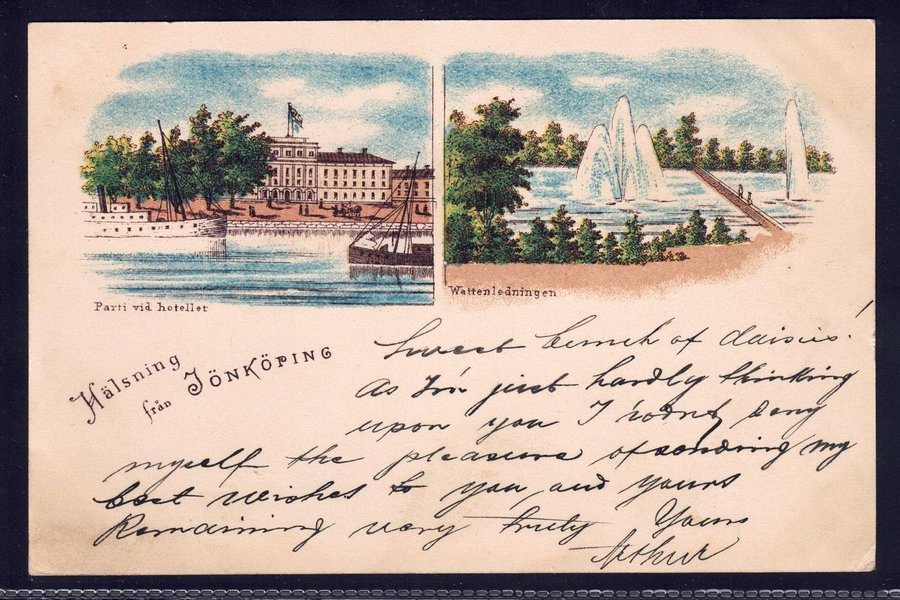 Parti vid hotellet
Wattenledningen
Hälsning
från JÖNKÖPING
Sweet bunch of daisies!
As I'm just hardly thinking
upon you I wdn't deny
myself the pleasure of sending my
best wishes to you and yours
Remaining very truly Yours
Arthur